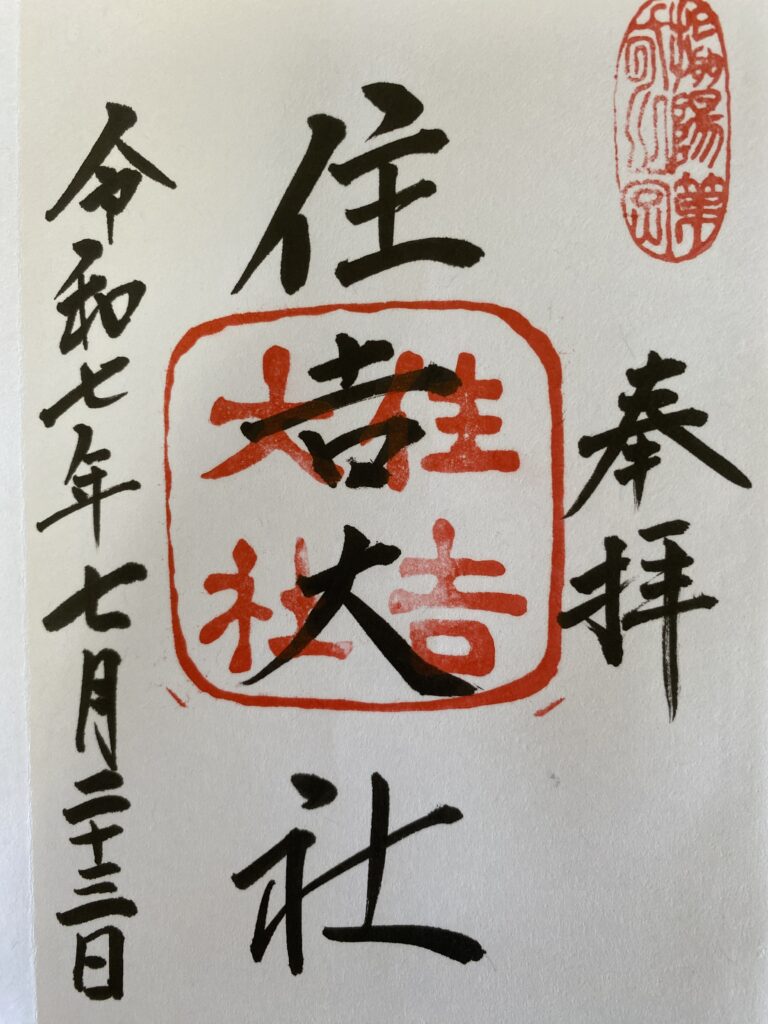 奉拝
住吉大社
住吉
大社
令和七年七月二十三日